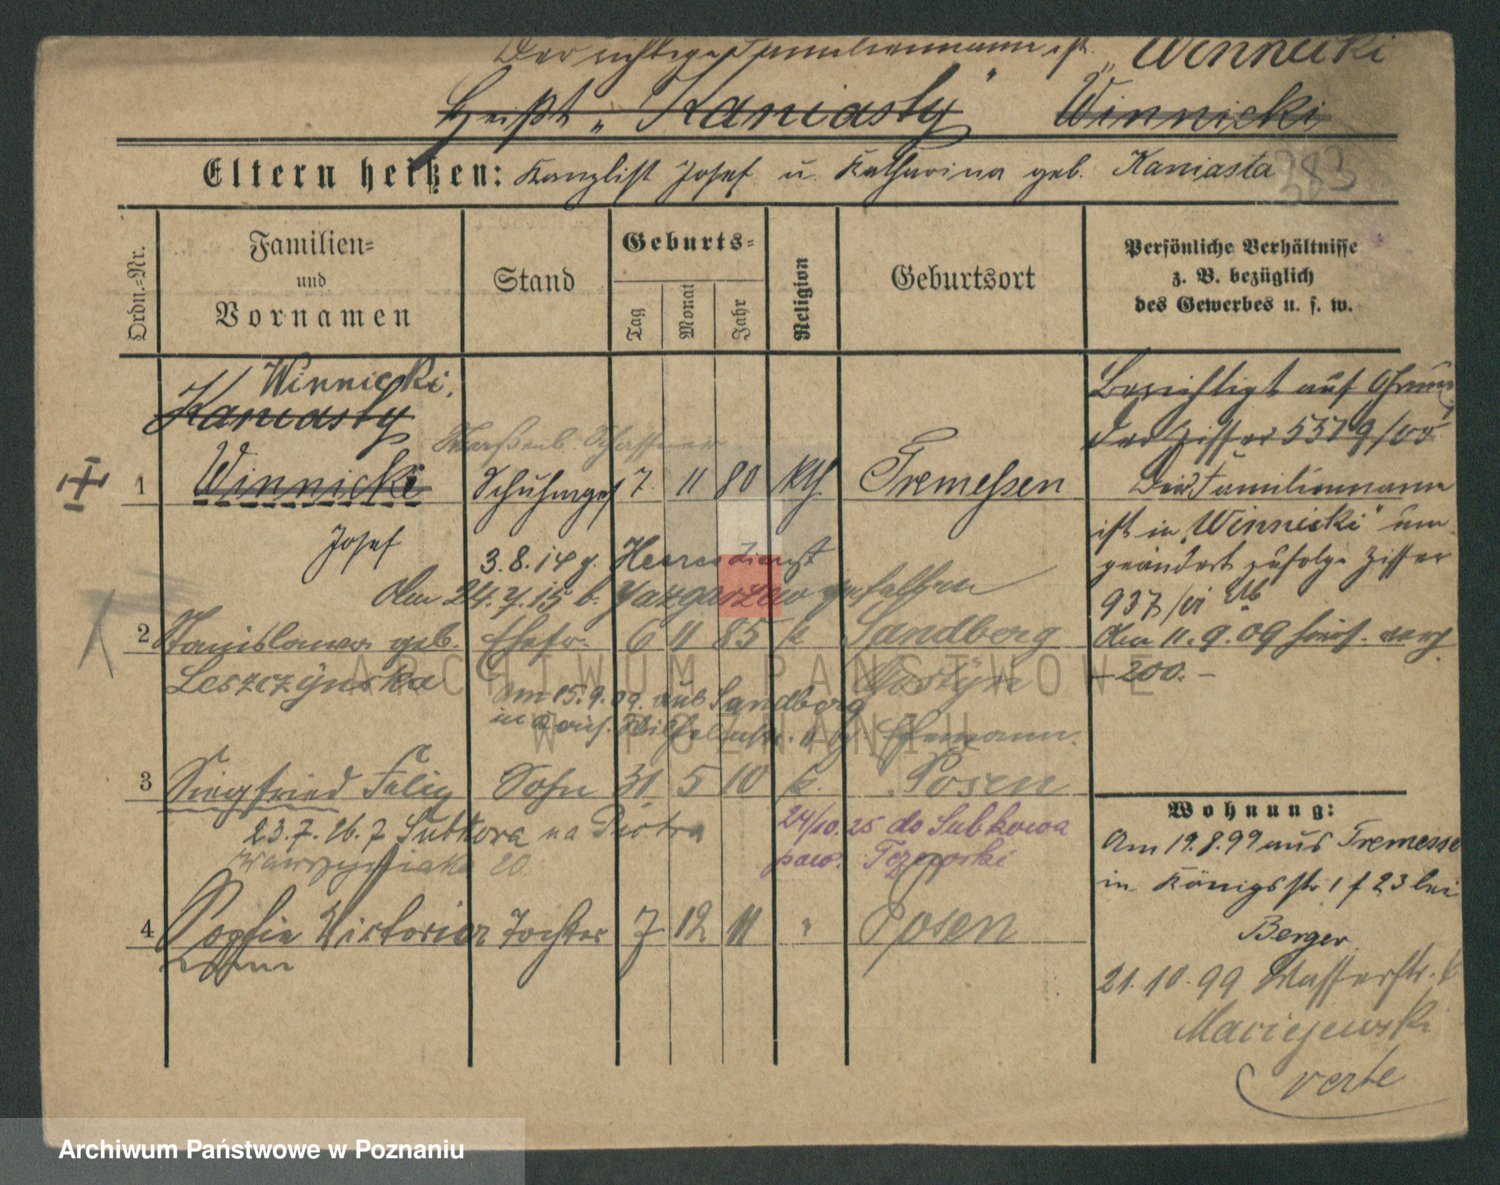 Der richtige Familienname ist „Winnicki
Heißt „Kaniasty“ Winnicki
383
Eltern heißen: Kanzlist Josef u. Katharina geb. Kaniasta
Ordn.-Nr.
Familien-
und
Vornamen
Stand
Geburts-
Tag
Monat
Jahr
Religion
Geburtsort
Persönliche Verhältnisse
z. B. bezüglich
des Gewerbes u. s. w.
Winnicki.
Kaniasty
Schaffner
1 Winnicki Schuhmges 7 11 80 kth Tremessen
Josef
3.8.14 z. Heeresdienst
Am 24.7.15 b. gefallen
2 Stanislawa geb. Ehefr. 6 11 85 k Sandberg
Leszczyńska Gostyn
am 15.9.09. aus Sandberg
in Ehemann.
3 Siegfried Felix Sohn 31 5 10 k. Posen
23.7.26. z Subkowa na Piotra
Wawrzyniaka 20.
24/10.25 do Subkowa
pow. Tczewski
4 Sophie Victoria Tochter 7 12 11 " Posen
Berichtigt auf Grund
der Ziffer 5579/00
Der Familienname
ist in „Winnicki“ um
geändert zufolge Ziffer
937/01
Am 11.9.09
200.-
Wohnung:
Am 19.8.99 aus Tremesse
in Königsstr. 1 f 23 bei
Berger
21.10.99 Wasserstr.
Maciejewski
verte
ARCHIWUM PAŃSTWOWE
W POZNANIU
Archiwum Państwowe w Poznaniu